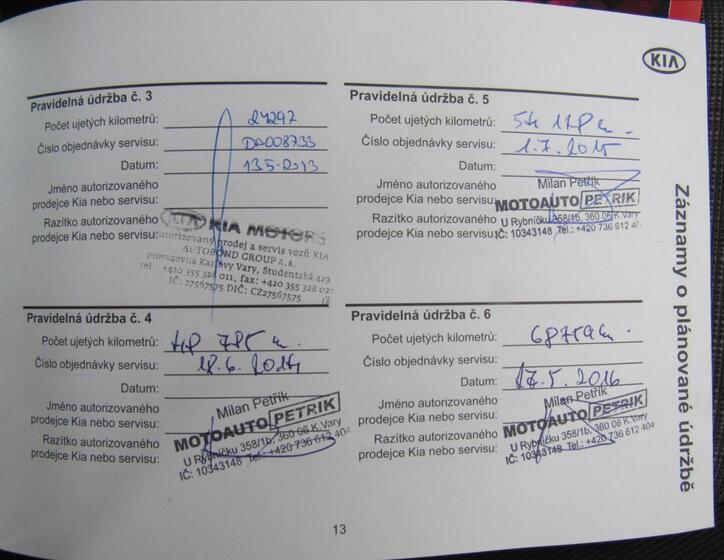 KIA
Záznamy o plánované údržbě
Pravidelná údržba č. 3
Počet ujetých kilometrů: 24297
Číslo objednávky servisu: DD008733
Datum: 13.5.2013
Jméno autorizovaného
prodejce Kia nebo servisu:
Razítko autorizovaného
prodejce Kia nebo servisu:
KIA MOTORS
autorizovaný prodej a servis vozů KIA
AUTOBOND GROUP a.s.
provozovna Karlovy Vary, Studentská 429
tel.: +420 355 328 011, fax: +420 355 328 022
IČ: 27567575 DIČ: CZ27567575
Pravidelná údržba č. 4
Počet ujetých kilometrů: 785
Číslo objednávky servisu: 18.6.2014
Datum:
Jméno autorizovaného
prodejce Kia nebo servisu:
Razítko autorizovaného
prodejce Kia nebo servisu:
Milan Petřík
MOTOAUTO PETRIK
U Rybníčku 358/1b, 360 06 K.Vary
IČ: 10343148 Tel.: +420 736 612 404
Pravidelná údržba č. 5
Počet ujetých kilometrů:
Číslo objednávky servisu: 1.7.2015
Datum:
Jméno autorizovaného
prodejce Kia nebo servisu:
Razítko autorizovaného
prodejce Kia nebo servisu:
Milan Petřík
MOTOAUTO PETRIK
U Rybníčku 358/1b, 360 06 K.Vary
IČ: 10343148 Tel.: +420 736 612 404
Pravidelná údržba č. 6
Počet ujetých kilometrů: 68759
Číslo objednávky servisu:
Datum: 17.5.2016
Jméno autorizovaného
prodejce Kia nebo servisu:
Razítko autorizovaného
prodejce Kia nebo servisu:
Milan Petřík
MOTOAUTO PETRIK
U Rybníčku 358/1b, 360 06 K.Vary
IČ: 10343148 Tel.: +420 736 612 404
13